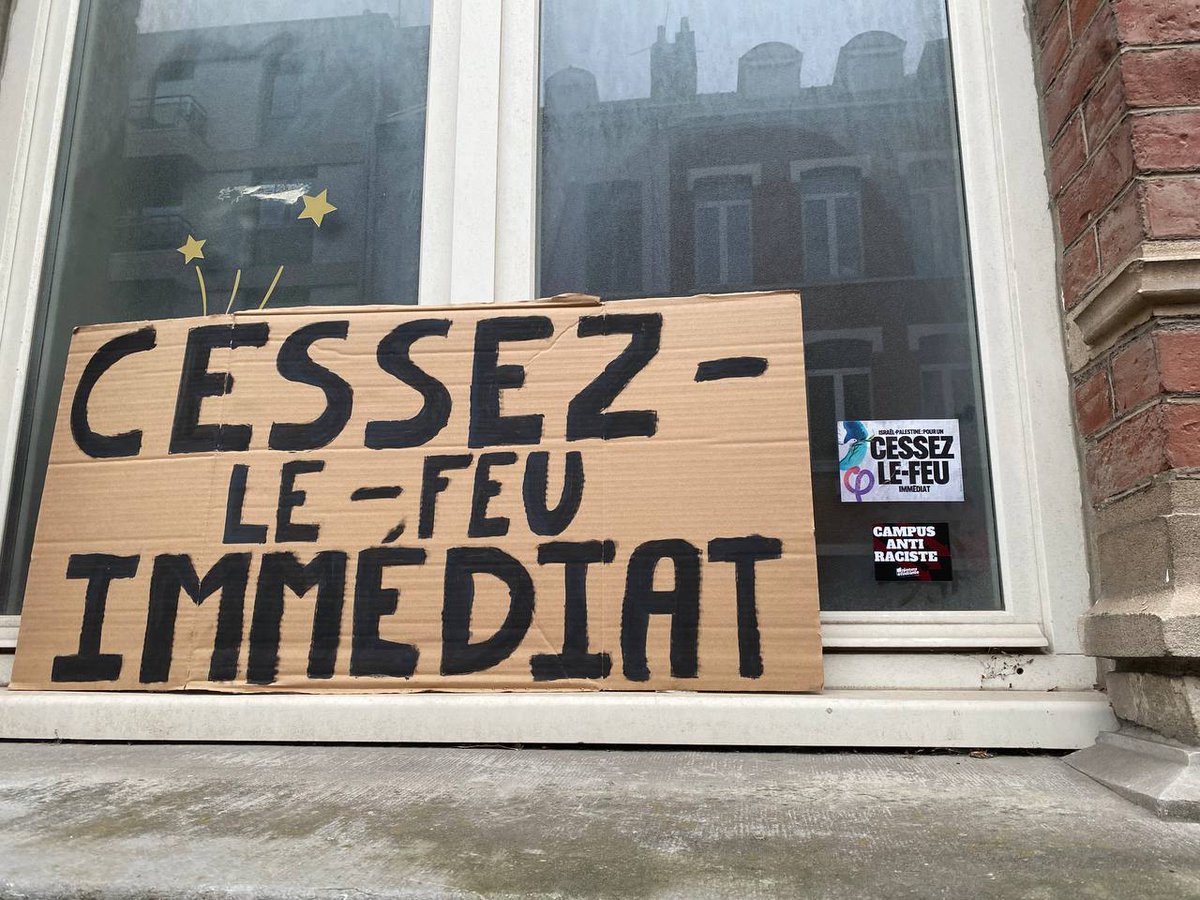 CESSEZ-
LE-FEU
IMMÉDIAT
ISRAËL-PALESTINE : POUR UN
CESSEZ
LE-FEU
IMMÉDIAT
CAMPUS
ANTI
RACISTE